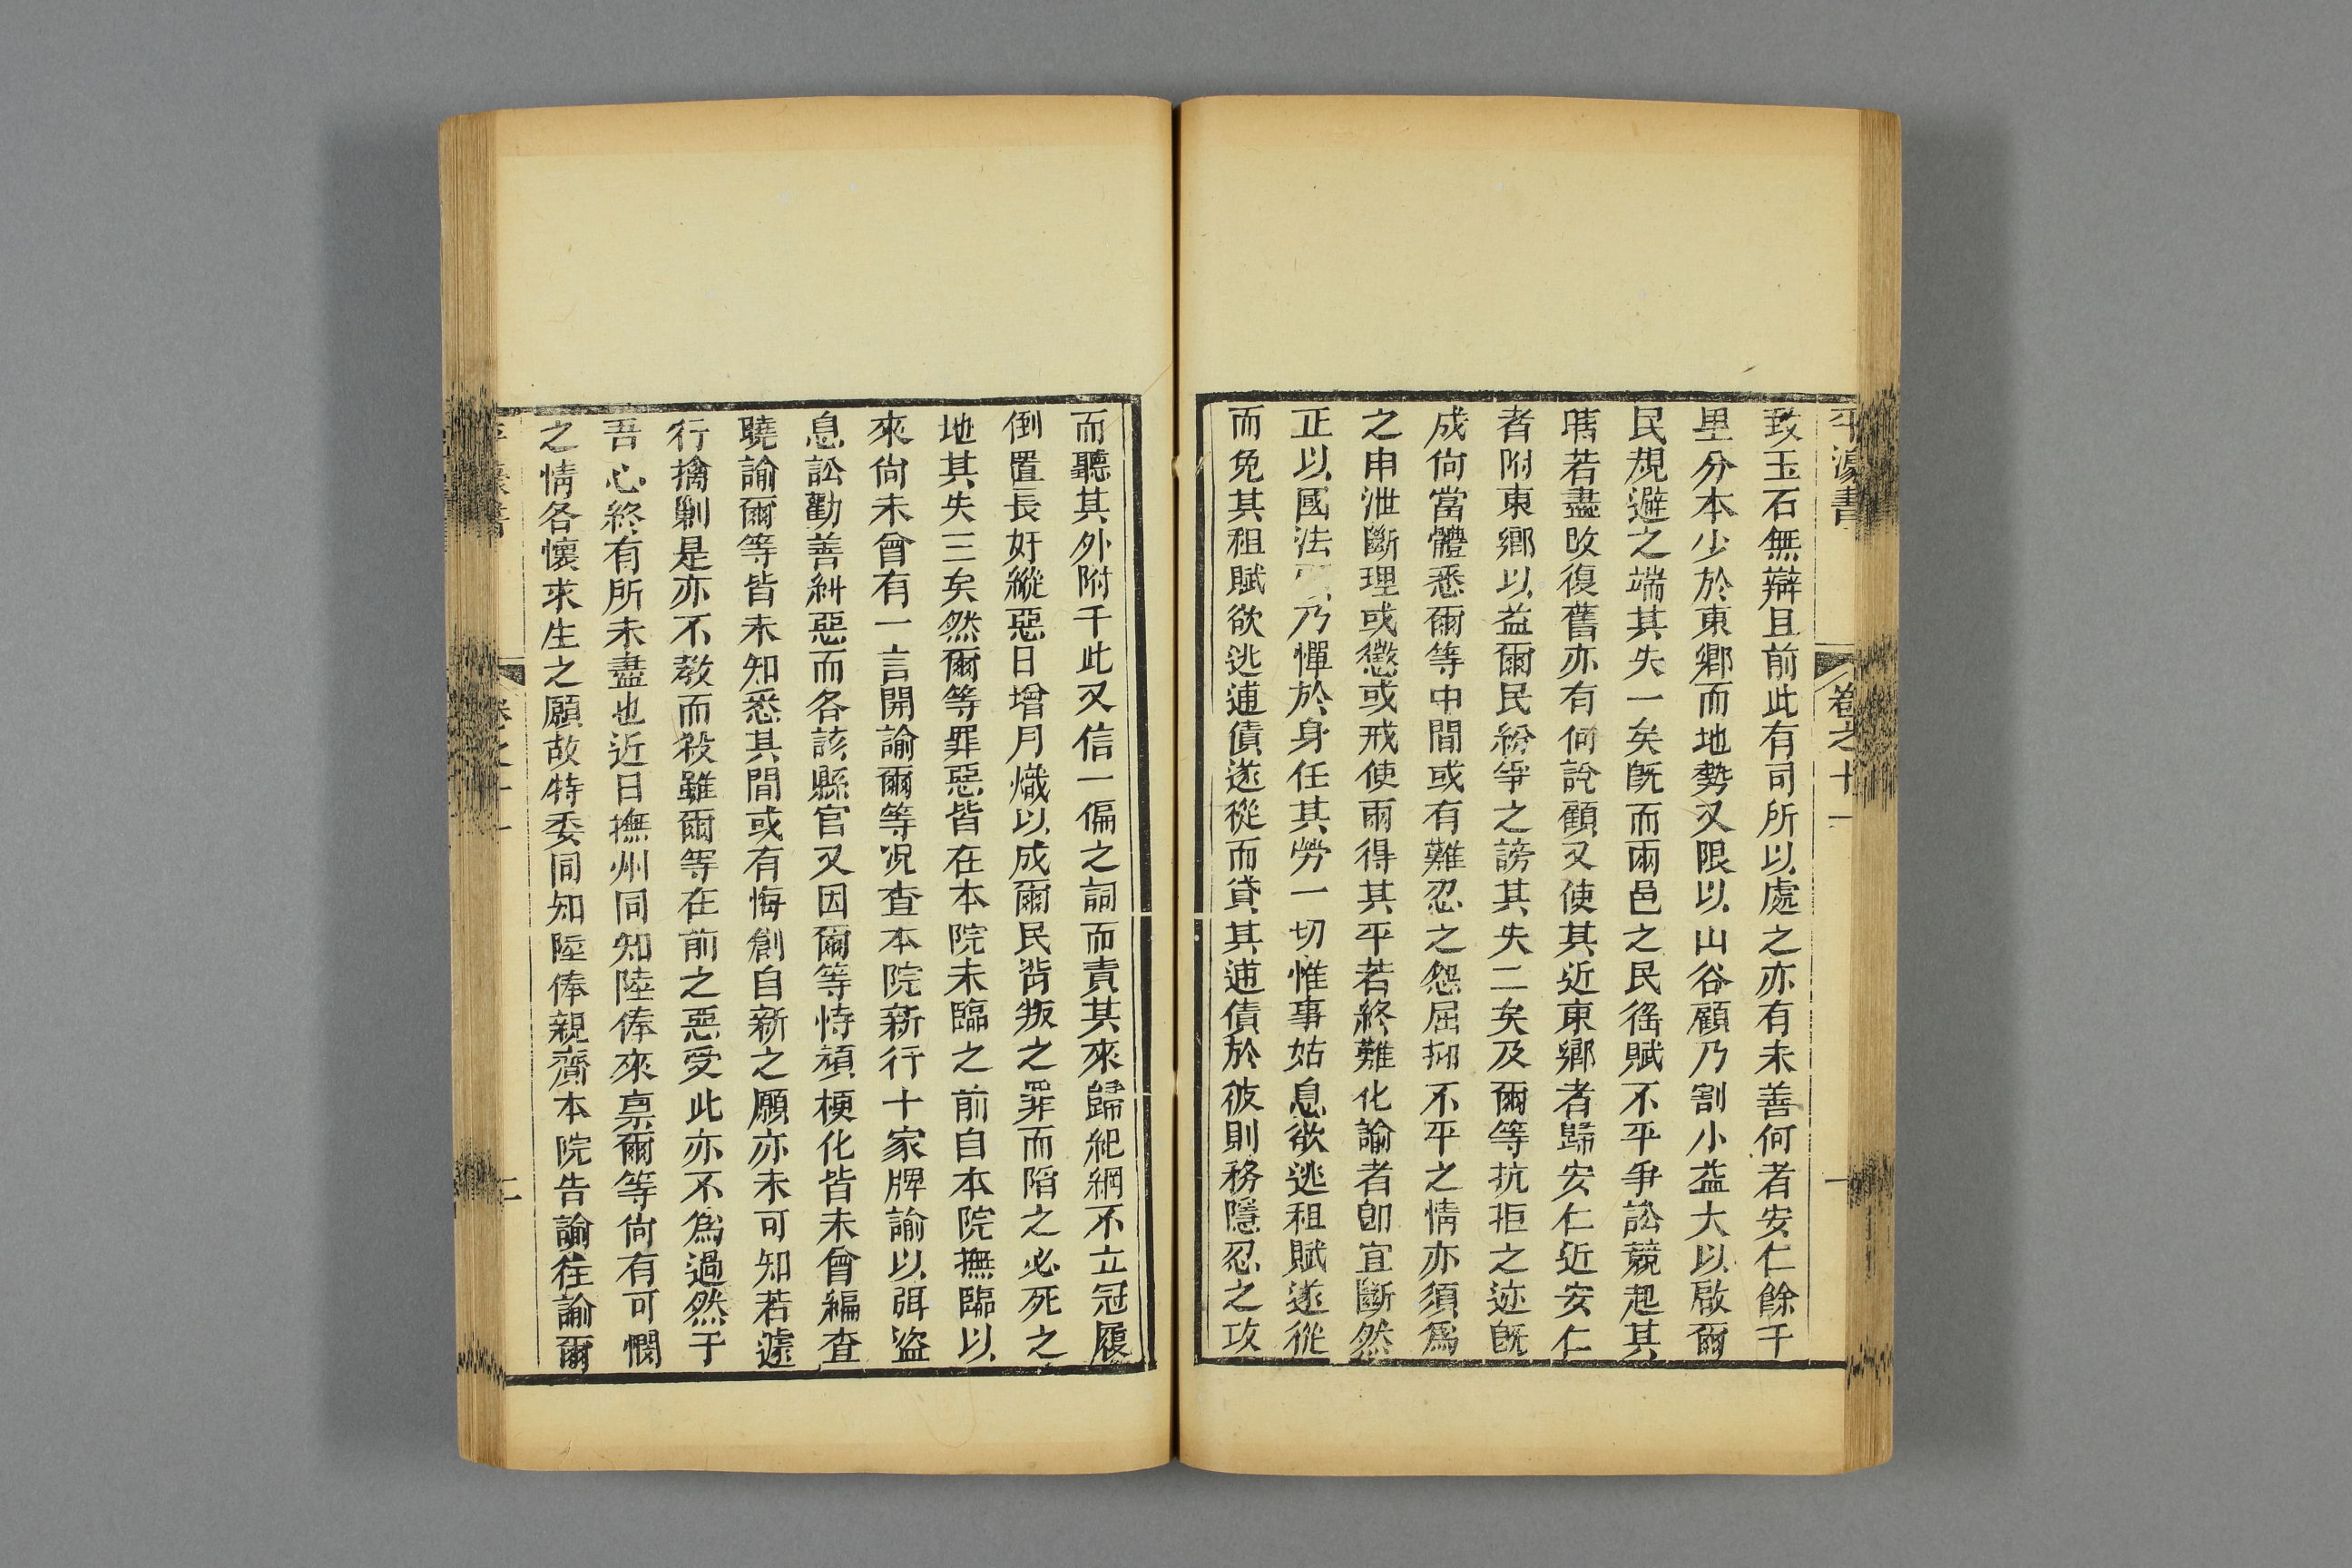 平濠書
卷之十一
一
致玉石無辯且前此有司所以處之亦有未善何者安仁餘干
里分本少於東鄉而地勢又限以山谷顧乃割小益大以啟爾
民規避之端其失一矣旣而兩邑之民徭賦不平爭訟競起其
時若盡改復舊亦有何說顧又使其近東鄉者歸安仁近安仁
者附東鄉以益爾民紛爭之謗其失二矣及爾等抗拒之迹旣
成尙當體悉爾等中間或有難忍之怨屈抑不平之情亦須爲
之申泄斷理或懲或戒使兩得其平若終難化諭者卽宜斷然
正以國法乃憚於身任其勞一切惟事姑息欲逃租賦遂從
而免其租賦欲逃逋債遂從而貸其逋債於彼則務隱忍之攻
而聽其外附千此又信一偏之詞而責其來歸紀綱不立冠履
倒置長奸縱惡日增月熾以成爾民背叛之罪而陷之必死之
地其失三矣然爾等罪惡皆在本院未臨之前自本院撫臨以
來尙未曾有一言開諭爾等况查本院新行十家牌諭以弭盜
息訟勸善糾惡而各該縣官又因爾等恃頑梗化皆未曾編查
曉諭爾等皆未知悉其間或有悔創自新之願亦未可知若遽
行擒剿是亦不教而殺雖爾等在前之惡受此亦不爲過然于
吾心終有所未盡也近日撫州同知陸俸來禀爾等尙有可憫
之情各懷求生之願故特委同知陸俸親齎本院告諭往諭爾
二